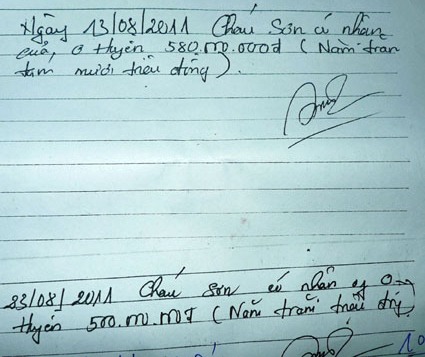 Ngày 13/08/2011 Cháu Sơn có nhận
của, O Huyền 580.000.000đ (Năm trăm
tám mươi triệu đồng).
23/08/2011 Cháu Sơn có nhận của O
Huyền 500.000.000đ (Năm trăm triệu đồng
10